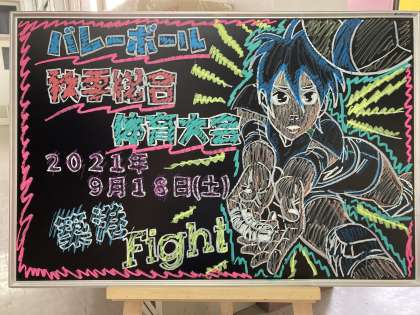 バレーボール
秋季総合
体育大会
2021年
9月18日(土)
築港
Fight